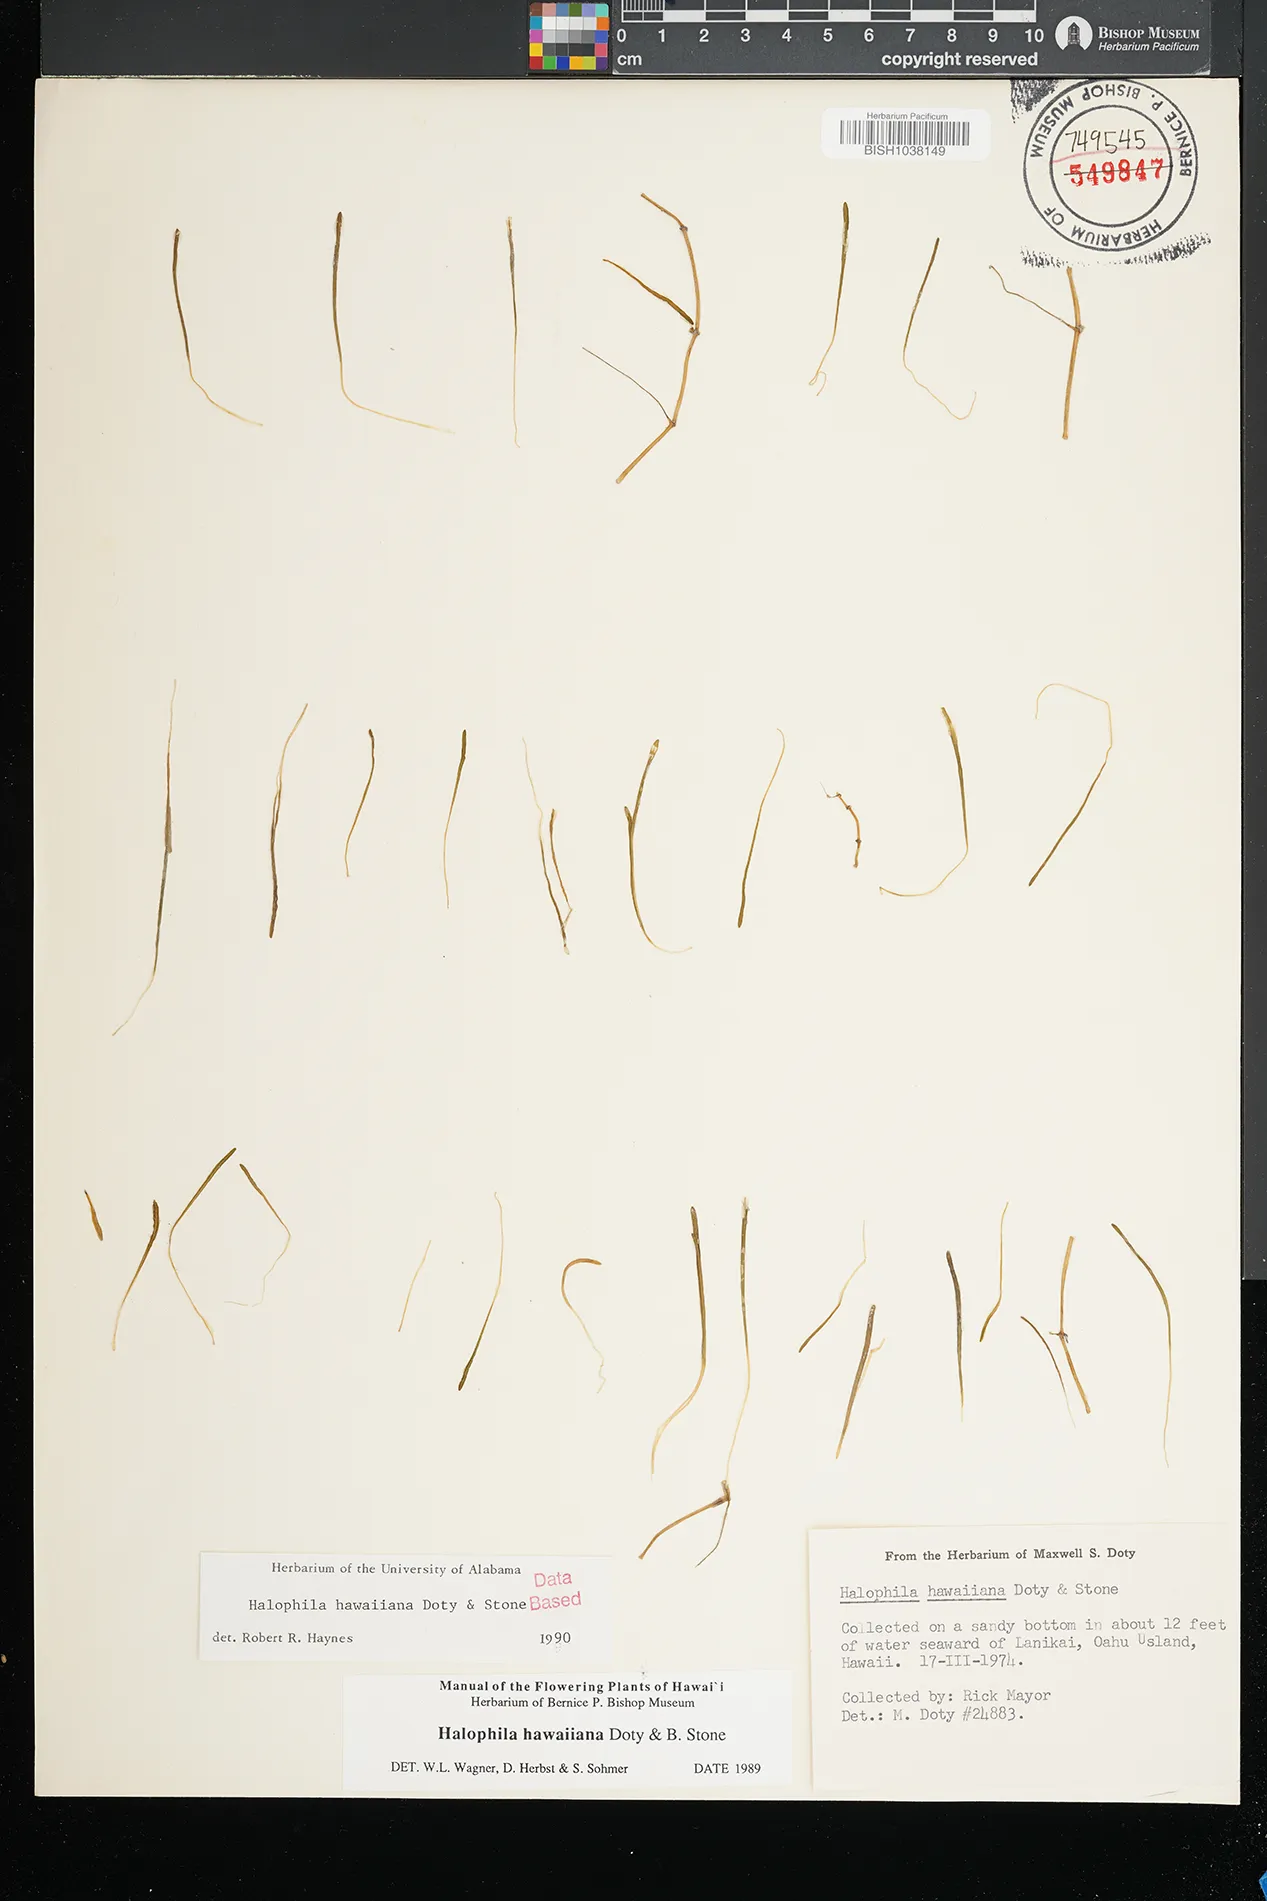 0 1 2 3 4 5 6 7 8 9 10
cm
copyright reserved
BISHOP MUSEUM
Herbarium Pacificum
Herbarium Pacificum
BISH1038149
HERBARIUM OF BERNICE P. BISHOP MUSEUM
749545
549847
Herbarium of the University of Alabama
Halophila hawaiiana Doty & Stone
Data Based
det. Robert R. Haynes 1990
Manual of the Flowering Plants of Hawai`i
Herbarium of Bernice P. Bishop Museum
Halophila hawaiiana Doty & B. Stone
DET. W.L. Wagner, D. Herbst & S. Sohmer DATE 1989
From the Herbarium of Maxwell S. Doty
Halophila hawaiiana Doty & Stone
Collected on a sandy bottom in about 12 feet
of water seaward of Lanikai, Oahu Usland,
Hawaii. 17-III-1974.
Collected by: Rick Mayor
Det.: M. Doty #24883.